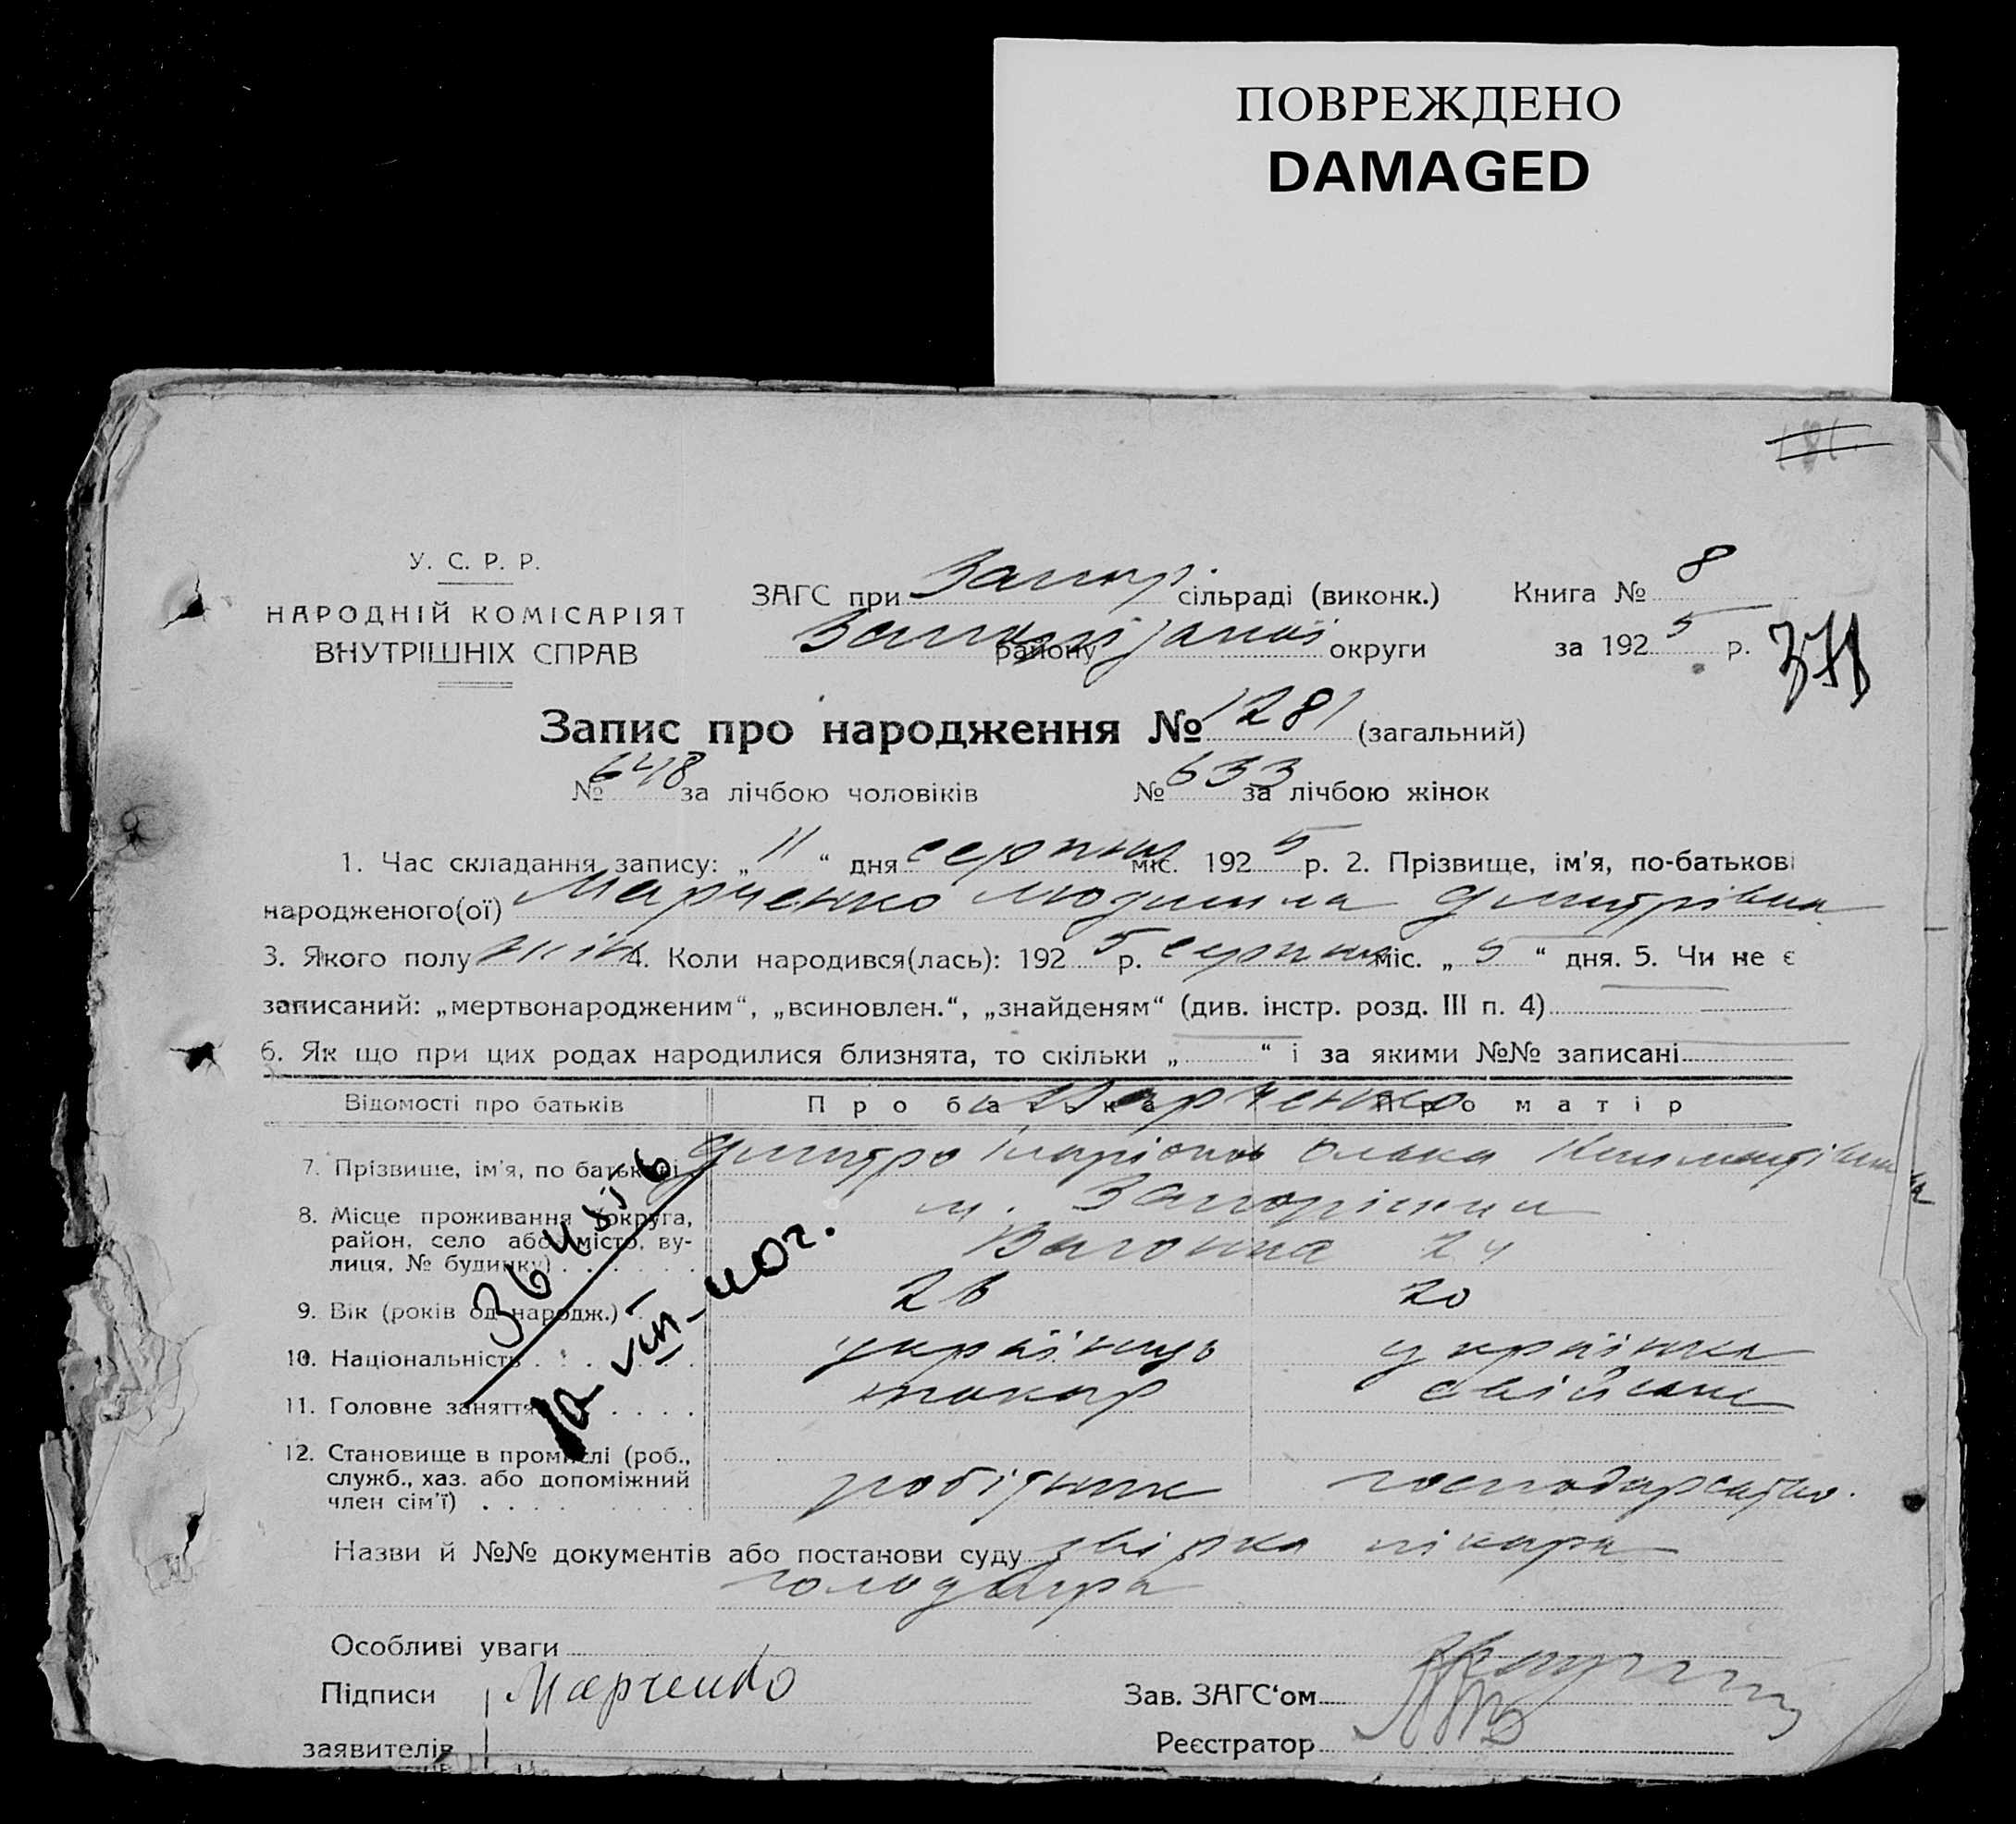 ПОВРЕЖДЕНО
DAMAGED
У. С. Р. Р.
НАРОДНІЙ КОМІСАРІЯТ
ВНУТРІШНІХ СПРАВ
ЗАГС при Запор. сільраді (виконк.)
району округи
Книга № 8
за 1925 р.
Запис про народження № 1281 (загальний)
№ 648 за лічбою чоловіків № 633 за лічбою жінок
1. Час складання запису: „11“ дня серпня міс. 1925 р. 2. Прізвище, ім'я, по-батькові
народженого(ої) Марченко Людмила Дмитрівна
3. Якого полу жін. 4. Коли народився(лась): 1925 р. серпня міс. „5“ дня. 5. Чи не є
записаний: „мертвонародженим“, „всиновлен.“, „знайденям“ (див. інстр. розд. III п. 4)
6. Як що при цих родах народилися близнята, то скільки „ “ і за якими №№ записані
Відомості про батьків Про батька Про матір
Марченко
7. Прізвище, ім'я, по батькові Дмитро Іларіонов Ольга
8. Місце проживання (округа, м. Запоріжжя
район, село або місто, ву-
лиця, № будинку) 24
9. Вік (років од народж.) 26 20
10. Національність українець українка
11. Головне заняття токар
12. Становище в промислі (роб.,
служб., хаз. або допоміжний робітник господарство.
член сім'ї)
Назви й №№ документів або постанови суду лікаря
Особливі уваги
Підписи Марченко Зав. ЗАГС'ом
заявителів Реєстратор